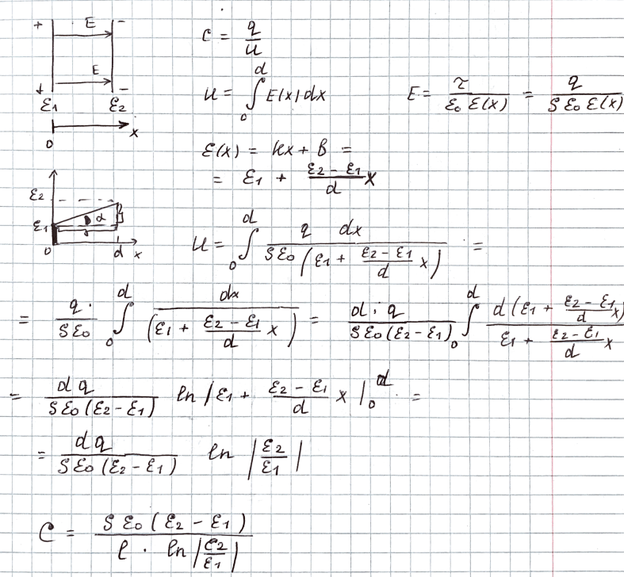 + E -
E
+ -
ε1 ε2
0 x
C = q/u
u = ∫₀ᵈ E(x)dx
E = τ/(ε0 ε(x)) = q/(S ε0 ε(x))
ε(x) = kx + B =
= ε1 + (ε2 - ε1)/d x
ε2
ε1 α
0 d x
u = ∫₀ᵈ q dx/(S ε0 (ε1 + (ε2 - ε1)/d x)) =
= q/(S ε0) ∫₀ᵈ dx/(ε1 + (ε2 - ε1)/d x) = d · q/(S ε0 (ε2 - ε1)) ∫₀ᵈ d(ε1 + (ε2 - ε1)/d x)/(ε1 + (ε2 - ε1)/d x)
= d q/(S ε0 (ε2 - ε1)) ln |ε1 + (ε2 - ε1)/d x |₀ᵈ =
= d q/(S ε0 (ε2 - ε1)) ln |ε2/ε1|
C = S ε0 (ε2 - ε1)/(l · ln |ε2/ε1|)